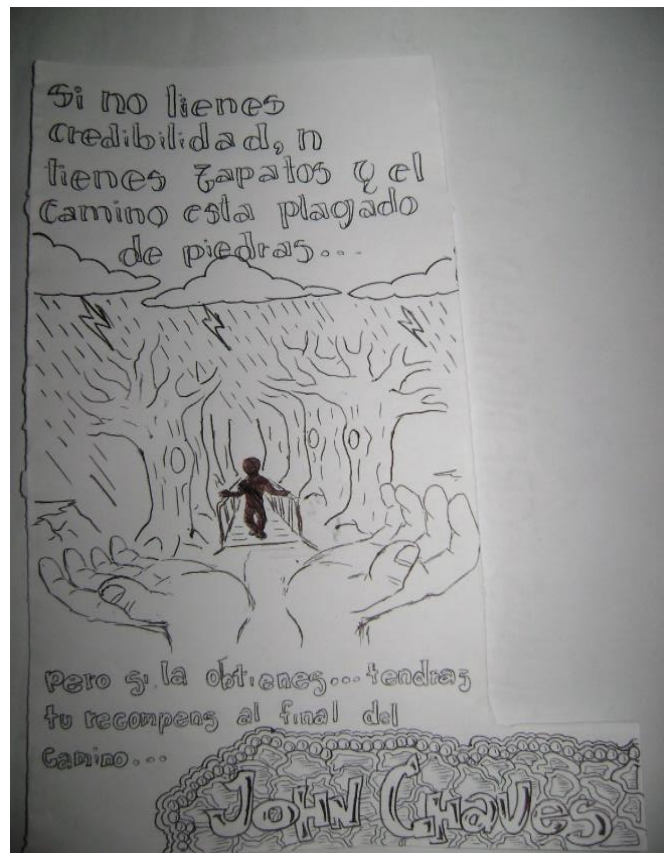 Si no tienes
credibilidad, n
tienes zapatos y el
camino esta plagado
de piedras...
Pero si la obtienes...tendras
tu recompens al final del
camino...
John Chaves